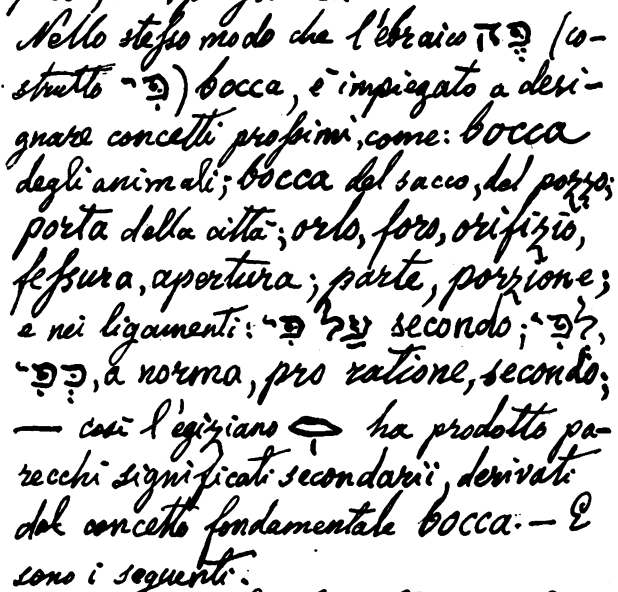 Nello stesso modo che l'ebraico פֶּה (co-
strutto פִּי) bocca, è impiegato a desi-
gnare concetti prossimi, come: bocca
degli animali; bocca del sacco, del pozzo;
porta della città; orlo, foro, orifizio,
fessura, apertura; parte, porzione;
e nei ligamenti: עַל פִּי secondo; לְפִי,
כְּפִי, a norma, pro ratione, secondo;
— così l'egiziano 𓂋 ha prodotto pa-
recchi significati secondarii, derivati
dal concetto fondamentale bocca. — E
sono i seguenti: